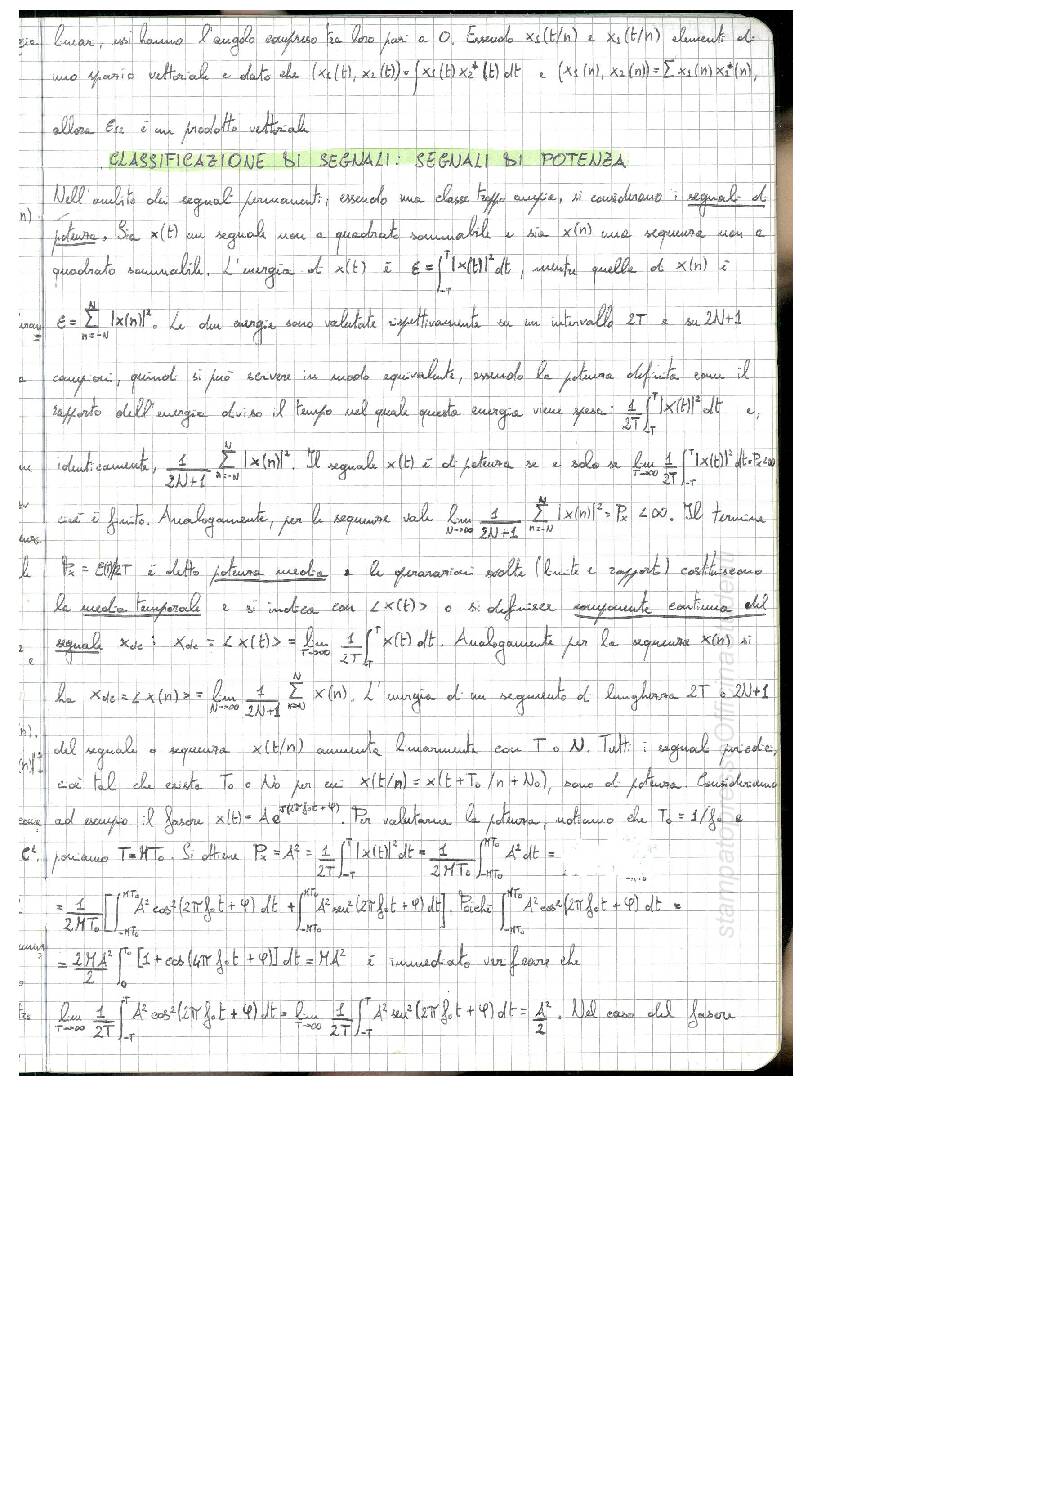 linear, essi hanno l'angolo compreso tra loro pari a 0. Essendo x₁(t/n) e x₁(t/n) elementi di
uno spazio vettoriale e dato che (x₁(t), x₂(t)) = ∫x₁(t)x₂*(t)dt e (x₁(n), x₂(n)) = Σx₁(n)x₂*(n),
allora è un prodotto vettoriale
CLASSIFICAZIONE DI SEGNALI: SEGNALI DI POTENZA
Nell'ambito dei segnali permanenti, essendo una classe troppo ampia, si considerano i segnali di
potenza. Sia x(t) un segnale non a quadrato sommabile e sia x(n) una sequenza non a
quadrato sommabile. L'energia di x(t) è ε = ∫_{-T}^{T} |x(t)|² dt, mentre quella di x(n) è
ε = Σ_{n=-N}^{N} |x(n)|². Le due energie sono valutate rispettivamente su un intervallo 2T e su 2N+1
campioni, quindi si può scrivere in modo equivalente, essendo la potenza definita come il
rapporto dell'energia diviso il tempo nel quale questa energia viene spesa: 1/2T ∫_{-T}^{T} |x(t)|² dt e,
identicamente, 1/(2N+1) Σ_{n=-N}^{N} |x(n)|². Il segnale x(t) è di potenza se e solo se lim_{T→∞} 1/2T ∫_{-T}^{T} |x(t)|² dt = Pₓ < ∞
cioè è finito. Analogamente, per le sequenze vale lim_{N→∞} 1/(2N+1) Σ_{n=-N}^{N} |x(n)|² = Pₓ < ∞. Il termine
Pₓ = /2T è detto potenza media e le operazioni svolte (limite e rapporti) costituiscono
la media temporale e si indica con <x(t)> o si definisce componente continua del
segnale x_dc : x_dc = <x(t)> = lim_{T→∞} 1/2T ∫_{-T}^{T} x(t) dt. Analogamente per la sequenza x(n) si
ha x_dc = <x(n)> = lim_{N→∞} 1/(2N+1) Σ x(n). L'energia di un segmento di lunghezza 2T o 2N+1
del segnale o sequenza x(t/n) aumenta linearmente con T o N. Tutti i segnali periodici,
cioè tali che esista T₀ o N₀ per cui x(t/n) = x(t+T₀/n+N₀), sono di potenza. Consideriamo
ad esempio il fasore x(t) = Ae^{j(2πf₀t+φ)}. Per valutarne la potenza, notiamo che T₀ = 1/f₀ e
poniamo T = MT₀. Si ottiene Pₓ = A² = 1/2T ∫_{-T}^{T} |x(t)|² dt = 1/2MT₀ ∫_{-MT₀}^{MT₀} A² dt =
= 1/2MT₀ [∫_{-MT₀}^{MT₀} A² cos²(2πf₀t+φ) dt + ∫_{-MT₀}^{MT₀} A² sen²(2πf₀t+φ) dt]. Poiché ∫_{-MT₀}^{MT₀} A² cos²(2πf₀t+φ) dt =
= 2MA²/2 ∫_{0}^{T₀} [1+cos(4πf₀t+φ)] dt = MA² è immediato verificare che
lim_{T→∞} 1/2T ∫_{-T}^{T} A² cos²(2πf₀t+φ) dt = lim_{T→∞} 1/2T ∫_{-T}^{T} A² sen²(2πf₀t+φ) dt = A²/2. Nel caso del fasore